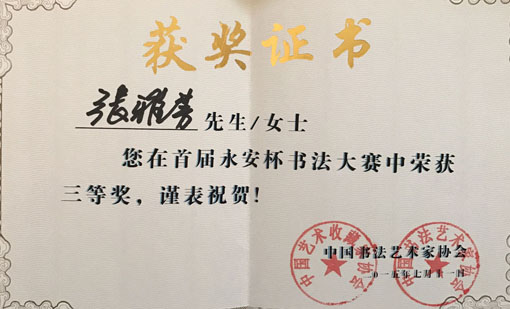 获奖证书
张雅芳 先生/女士
您在首届永安杯书法大赛中荣获
三等奖，谨表祝贺！
中国书法艺术家协会
二〇一五年七月十一日